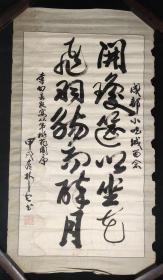 成都小吃城留念
開瓊筵以坐花
飛羽觴而醉月
李白春夜宴桃花園序
甲戌春林书